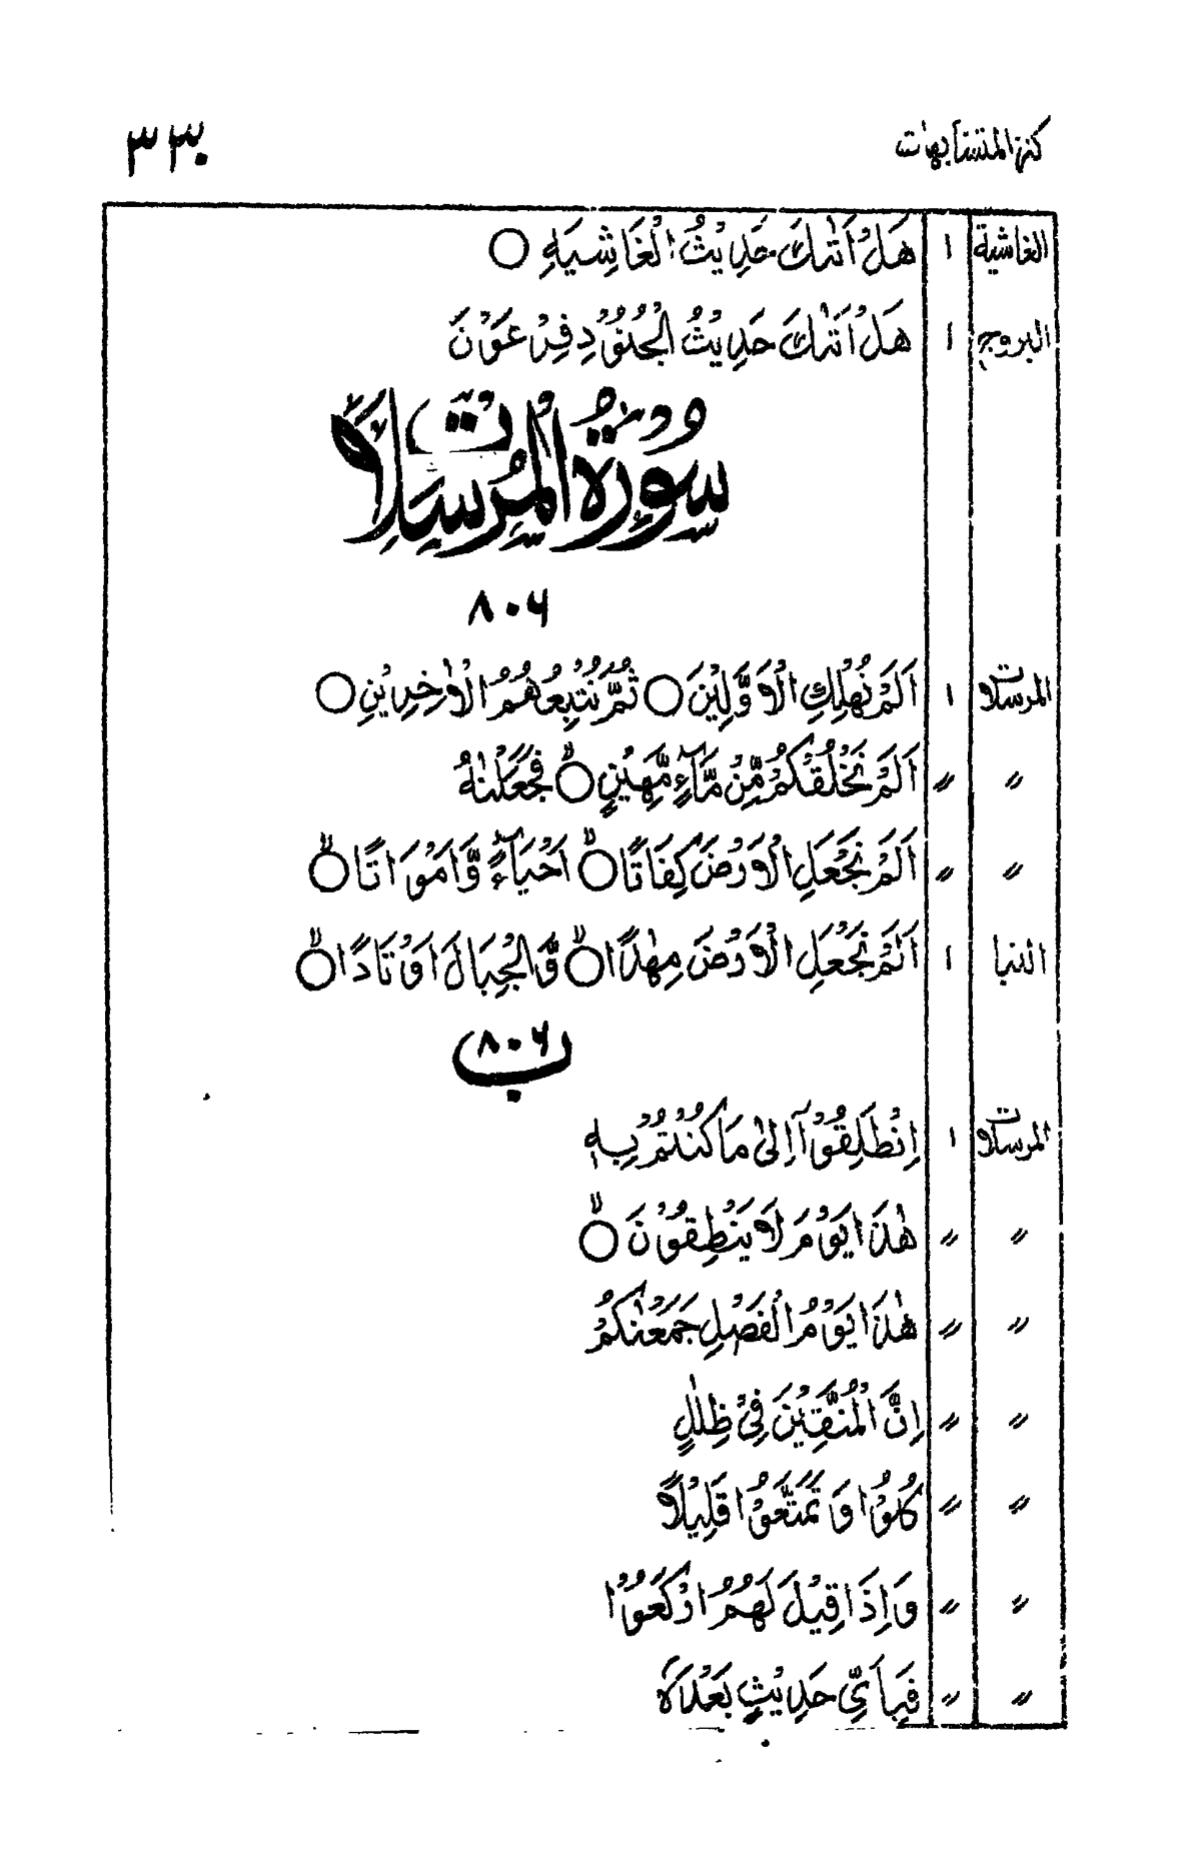 كنز المتشابهات ٣٣٠
الغاشية ١ هَلْ اَتٰىكَ حَدِيْثُ الْغَاشِيَةِ ○
البروج ١ هَلْ اَتٰىكَ حَدِيْثُ الْجُنُوْدِ فِرْعَوْنَ
سُوْرَةُ الْمُرْسَلَاتِ
٨٠٦
المرسلات ١ اَلَمْ نُهْلِكِ الْاَوَّلِيْنَ ○ ثُمَّ نُتْبِعُهُمُ الْاٰخِرِيْنِ ○
〃 〃 اَلَمْ نَخْلُقْكُمْ مِّنْ مَّآءٍ مَّهِيْنٍ ○ فَجَعَلْنٰهُ
〃 〃 اَلَمْ نَجْعَلِ الْاَرْضَ كِفَاتًا ○ اَحْيَآءً وَّاَمْوَاتًا ○
النبا ١ اَلَمْ نَجْعَلِ الْاَرْضَ مِهٰدًا ○ وَّالْجِبَالَ اَوْتَادًا ○
٨٠٦ ب
المرسلات ١ اِنْطَلِقُوْٓا اِلٰى مَا كُنْتُمْ بِهٖ
〃 〃 هٰذَا يَوْمُ لَا يَنْطِقُوْنَ ○
〃 〃 هٰذَا يَوْمُ الْفَصْلِ جَمَعْنٰكُمْ
〃 〃 اِنَّ الْمُتَّقِيْنَ فِيْ ظِلٰلٍ
〃 〃 كُلُوْا وَ تَمَتَّعُوْا قَلِيْلًا
〃 〃 وَاِذَا قِيْلَ لَهُمُ ارْكَعُوْا
〃 〃 فَبِاَيِّ حَدِيْثٍ بَعْدَهٗ